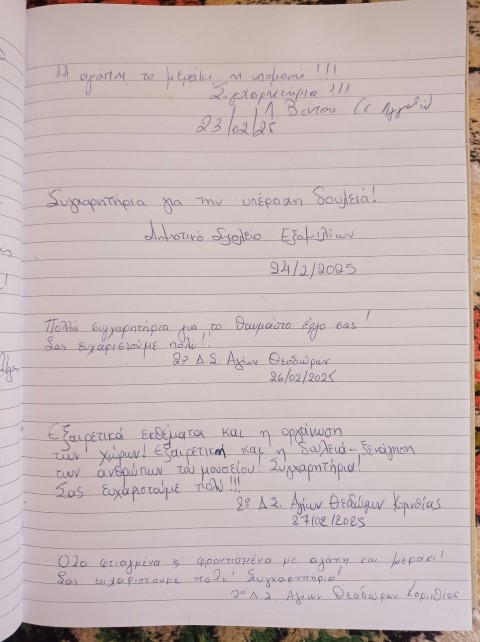 Η αγάπη, το μεράκι, η υπομονή!!!
Συγχαρητήρια!!!
Λ Βέντου
23/02/25
Συγχαρητήρια για την υπέροχη δουλειά!
Δημοτικό Σχολείο Εξαμιλίων
24/2/2025
Πολλά συγχαρητήρια για το θαυμάσιο έργο σας!
Σας ευχαριστούμε πολύ!!
2ο Δ.Σ. Αγίων Θεοδώρων
26/02/2025
Εξαιρετικά εκθέματα και η οργάνωση
των χώρων! Εξαιρετική και η δουλειά-ξενάγηση
των ανθρώπων του μουσείου! Συγχαρητήρια!
Σας ευχαριστούμε πολύ!!!
2ο Δ.Σ. Αγίων Θεοδώρων Κορινθίας
27/02/2025
Όλα φτιαγμένα κ' φροντισμένα με αγάπη και μεράκι!
Σας ευχαριστούμε πολύ! Συγχαρητήρια!
2ο Δ.Σ. Αγίων Θεοδώρων Κορινθίας